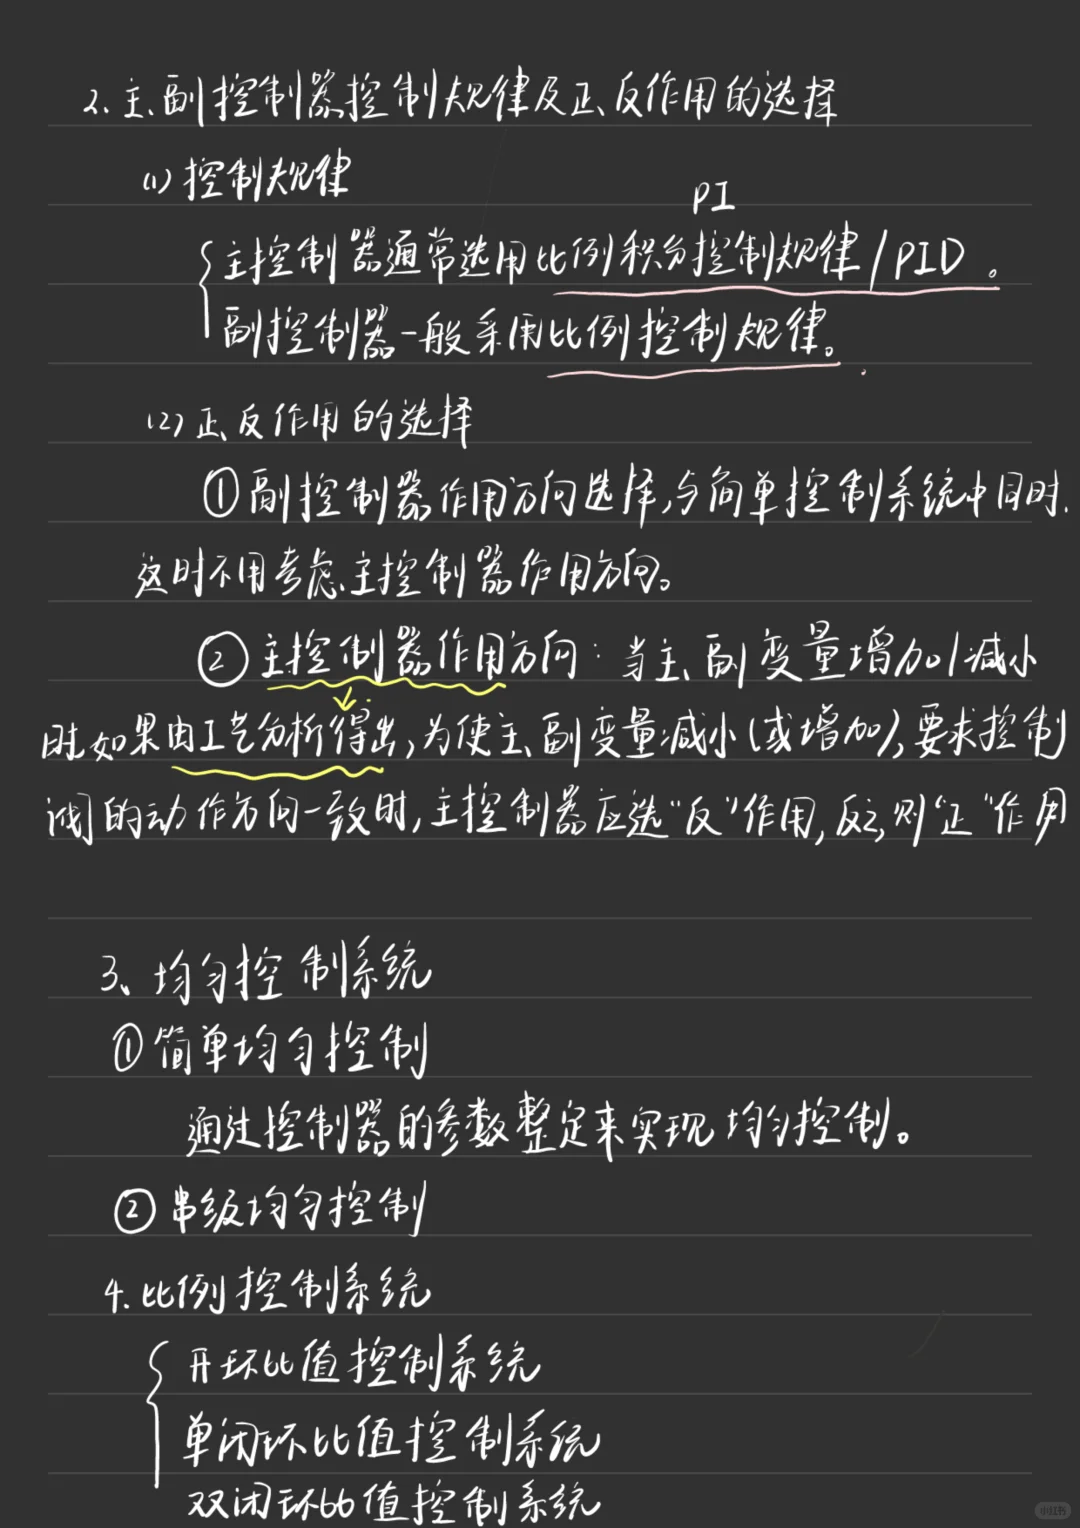 2.主、副控制器控制规律及正、反作用的选择
(1)控制规律
PI
主控制器通常选用比例积分控制规律/PID。
副控制器一般采用比例控制规律。
(2)正、反作用的选择
①副控制器作用方向选择,与简单控制系统中同时.
这时不用考虑主控制器作用方向。
②主控制器作用方向:当主、副变量增加/减小
时,如果由工艺分析得出,为使主、副变量减小(或增加),要求控制
阀的动作方向一致时,主控制器应选"反"作用,反之,则"正"作用
3、均匀控制系统
①简单均匀控制
通过控制器的参数整定来实现均匀控制。
②串级均匀控制
4.比例控制系统
开环比值控制系统
单闭环比值控制系统
双闭环比值控制系统
小红书